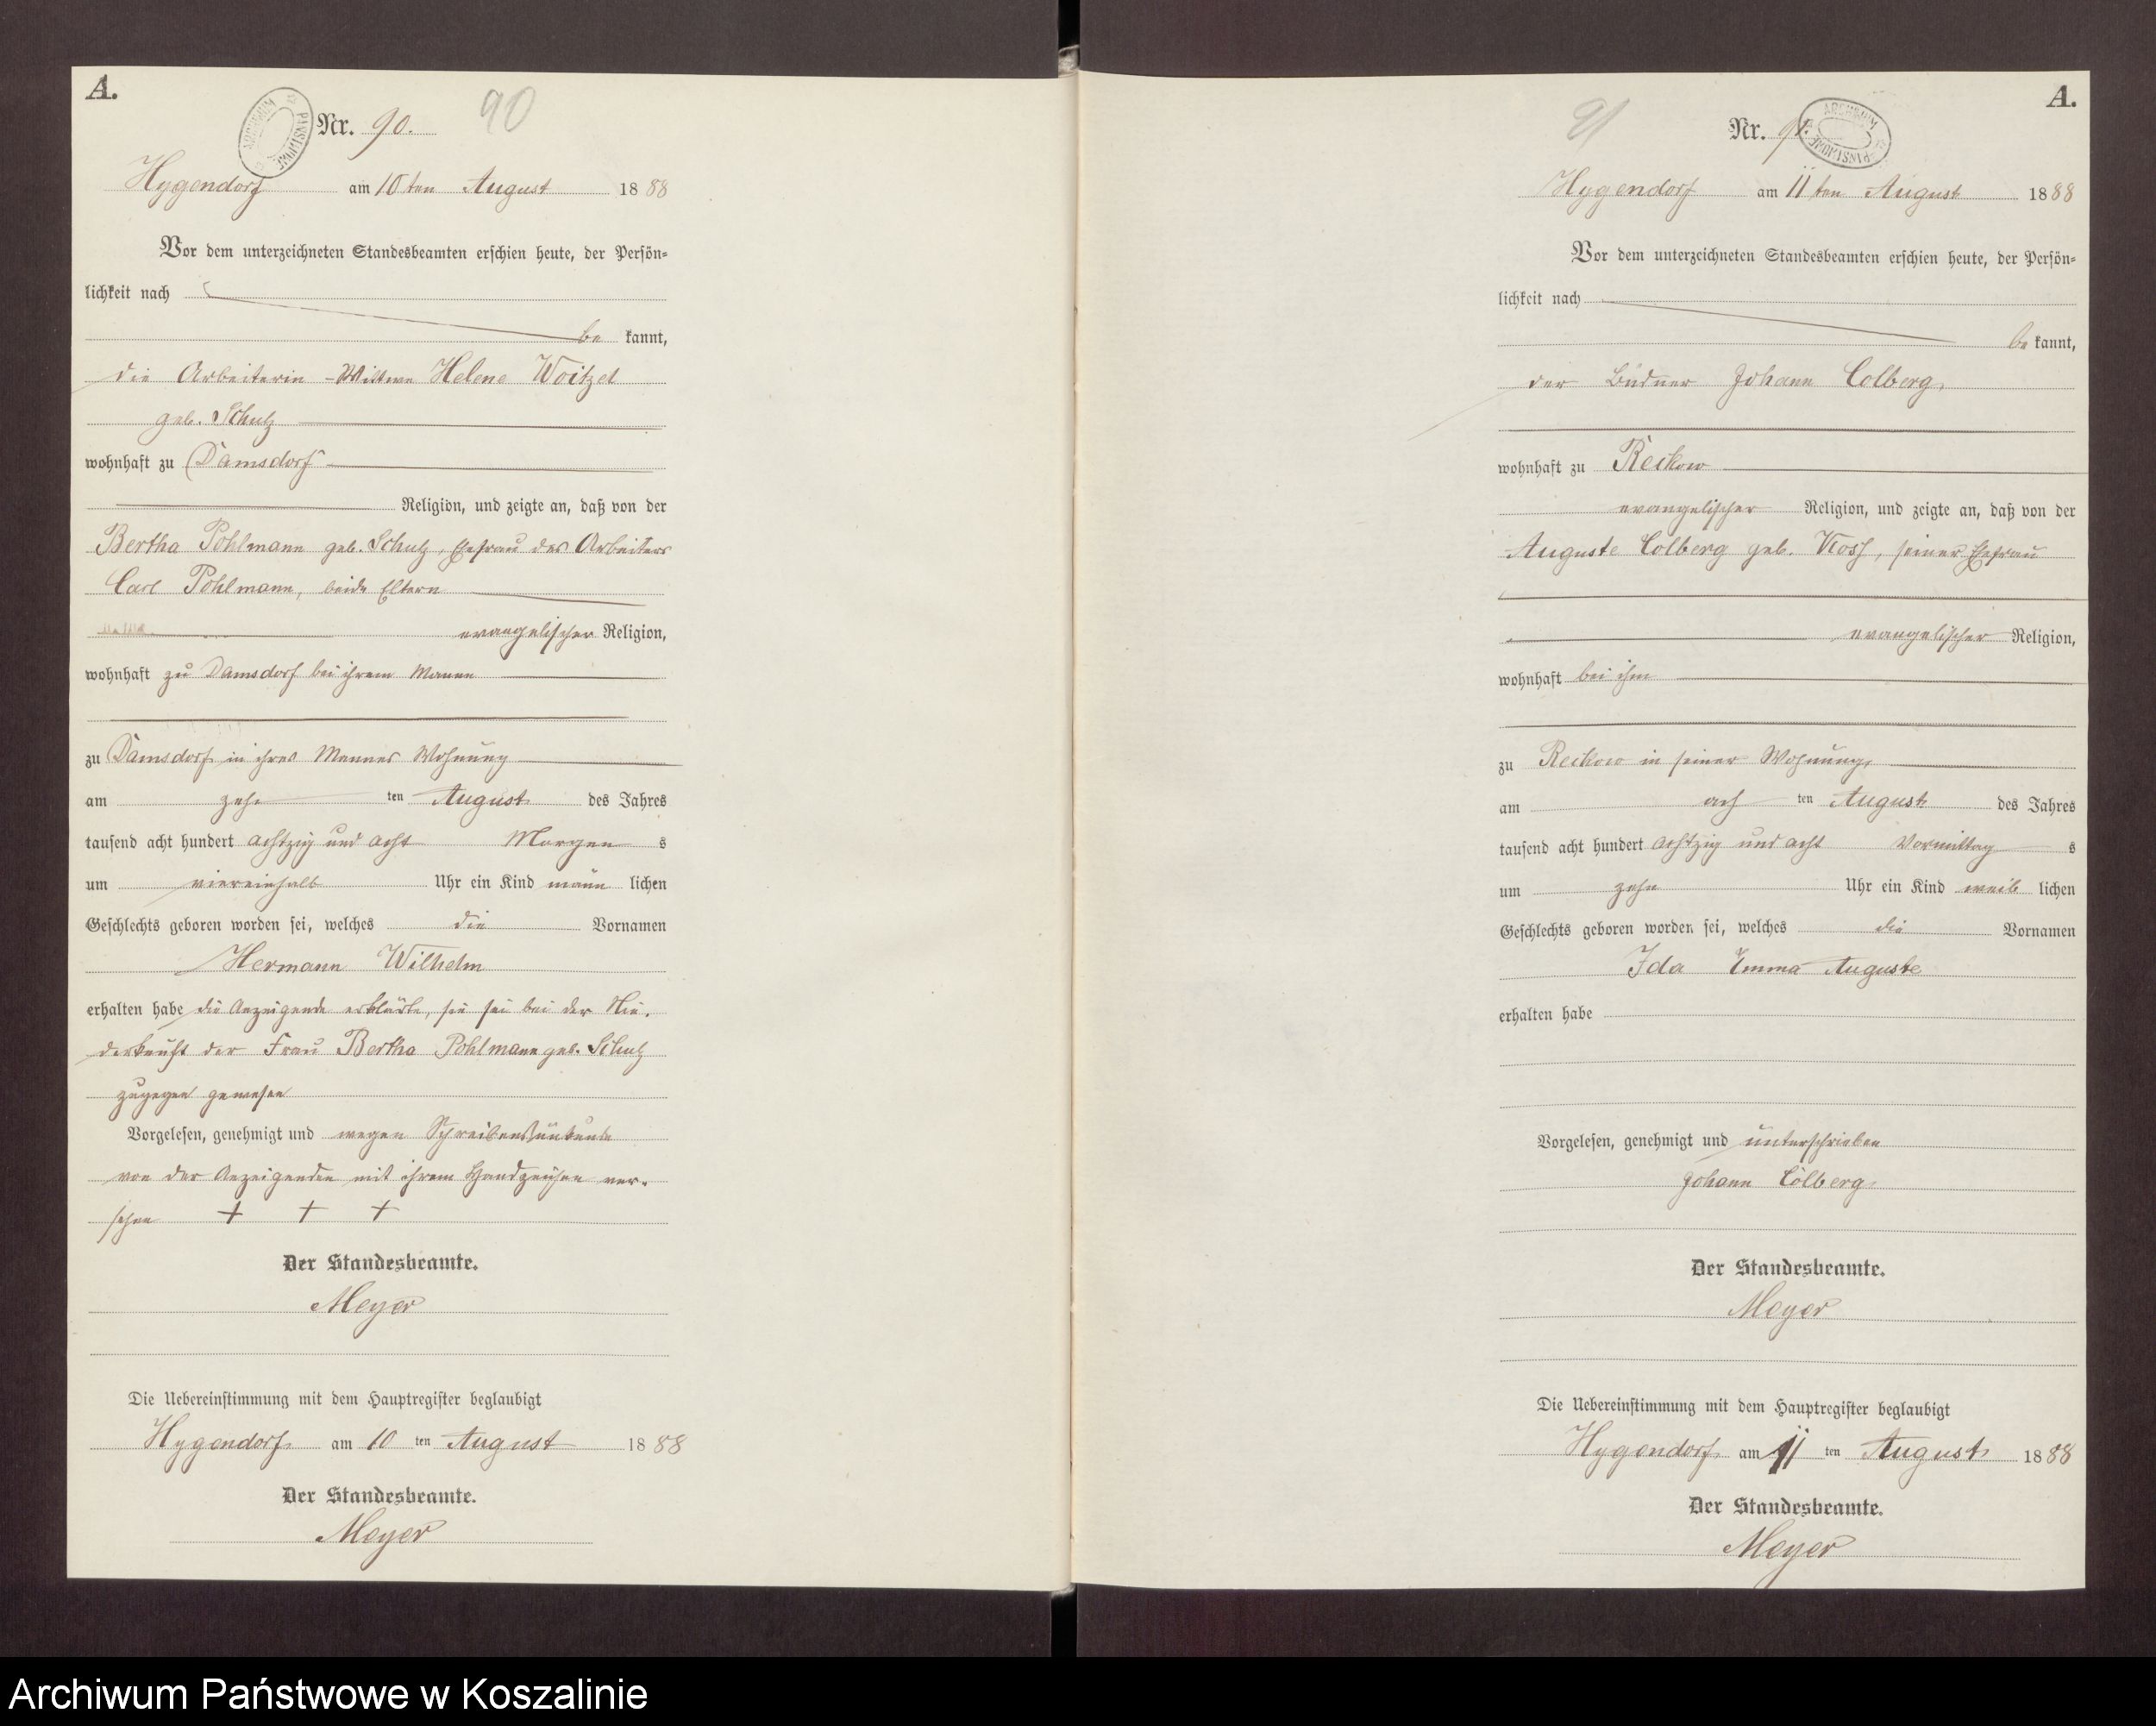 A.
Nr. 90.
90
Hygendorf am 10ten August 1888
Vor dem unterzeichneten Standesbeamten erschien heute, der Persön-
lichkeit nach
be kannt,
die Arbeiterin-Wittwe Helene Woitzel
geb. Schulz
wohnhaft zu Damsdorf
Religion, und zeigte an, daß von der
Bertha Pohlmann geb. Schulz, Ehefrau des Arbeiters
Carl Pohlmann, beide Eltern
evangelischer Religion,
wohnhaft zu Damsdorf bei ihrem Manne
zu Damsdorf in ihres Mannes Wohnung
am zehn ten August des Jahres
tausend acht hundert achtzig und acht Morgens
um viereinhalb Uhr ein Kind männ lichen
Geschlechts geboren worden sei, welches die Vornamen
Hermann Wilhelm
erhalten habe die Anzeigende erklärte, sie sei bei der Nie-
derkunft der Frau Bertha Pohlmann geb. Schulz
zugegen gewesen
Vorgelesen, genehmigt und wegen Schreibensunkunde
von der Anzeigenden mit ihrem Handzeichen ver-
sehen + + +
Der Standesbeamte.
Meyer
Die Uebereinstimmung mit dem Hauptregister beglaubigt
Hygendorf am 10 ten August 1888
Der Standesbeamte.
Meyer
A.
91
Nr. 91.
ARCHIWUM PAŃSTWOWE
Hygendorf am 11ten August 1888
Vor dem unterzeichneten Standesbeamten erschien heute, der Persön-
lichkeit nach
be kannt,
der Büdner Johann Colberg,
wohnhaft zu Reckow
evangelischer Religion, und zeigte an, daß von der
Auguste Colberg geb. Voss, seiner Ehefrau
evangelischer Religion,
wohnhaft bei ihm
zu Reckow in seiner Wohnung,
am ach ten August des Jahres
tausend acht hundert achtzig und acht Vormittags
um zehn Uhr ein Kind weib lichen
Geschlechts geboren worden sei, welches die Vornamen
Ida Emma Auguste
erhalten habe
Vorgelesen, genehmigt und unterschrieben
Johann Colberg
Der Standesbeamte.
Meyer
Die Uebereinstimmung mit dem Hauptregister beglaubigt
Hygendorf am 11 ten August 1888
Der Standesbeamte.
Meyer
Archiwum Państwowe w Koszalinie